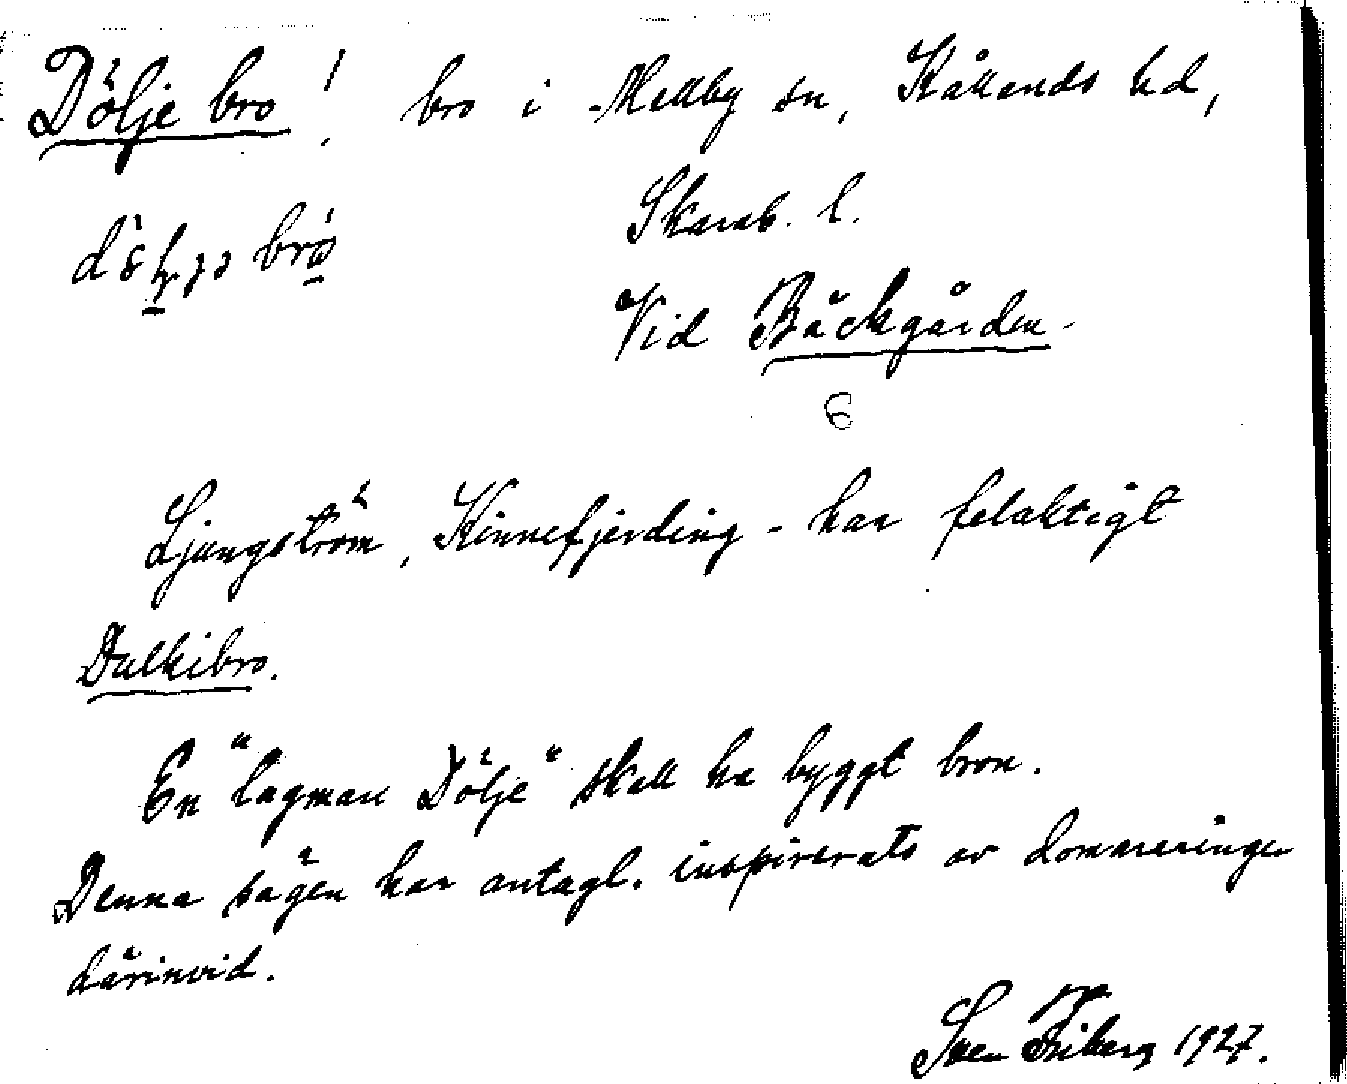 Dölje bro! bro i Mellby sn, Kållands hd,
Skarab. l.
bro
Vid Bäckgården.
6
Ljungström, Kinnefjerding - har felaktigt
Dalkibro.
En "lagman Dölje" skall ha byggt bron.
Denna sägen har antagl. inspirerats av domareringen
därinvid.
Sven Friberg 1927.